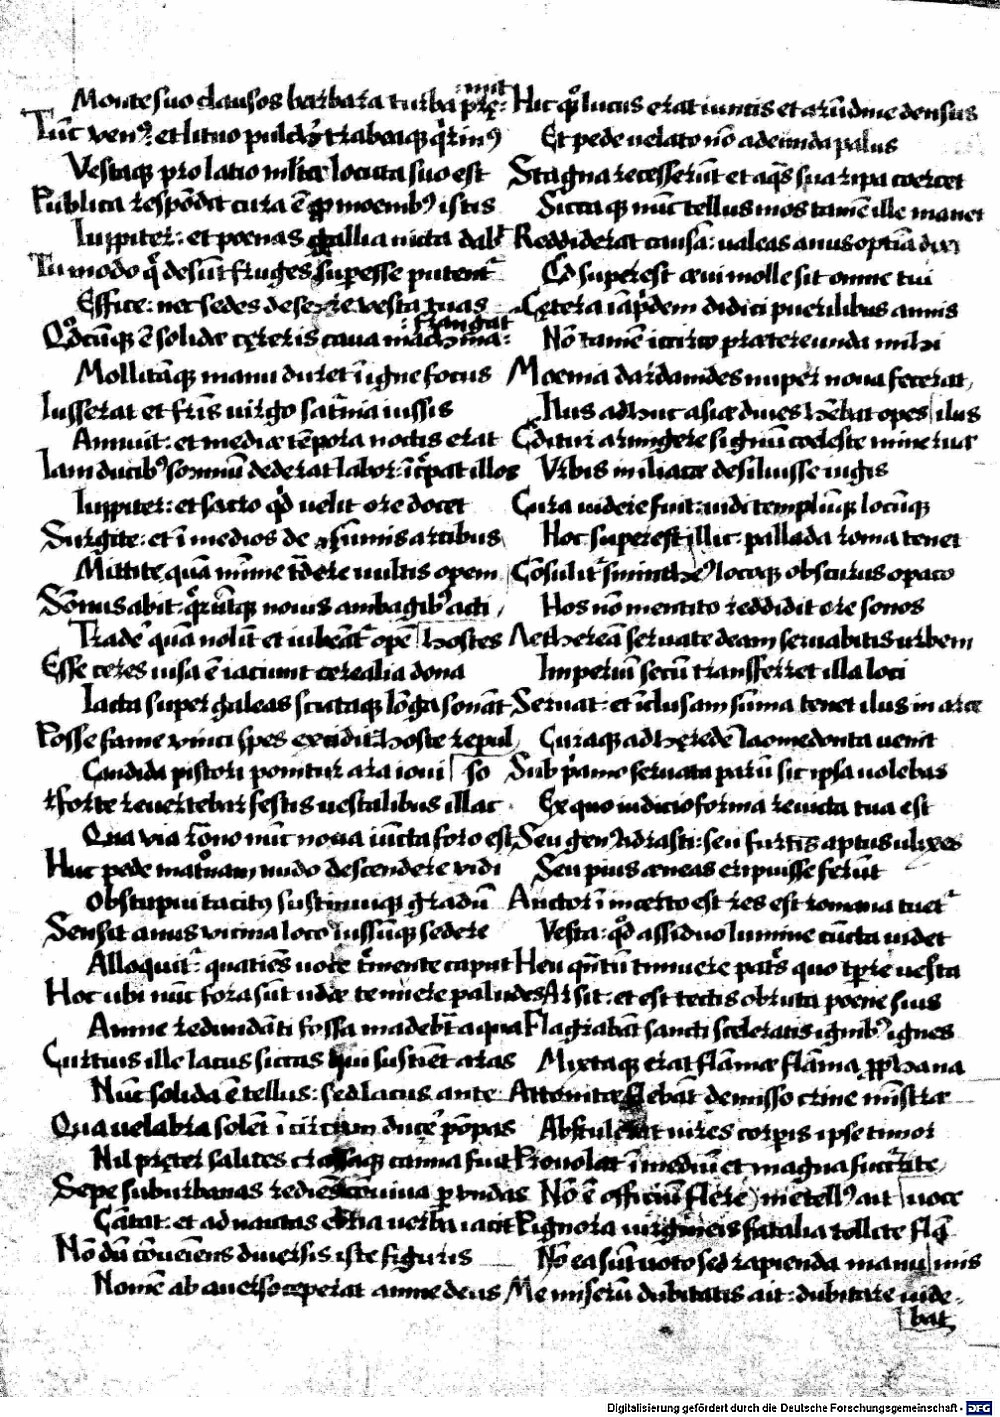 Monte suo clausos barbara turba p̄mit
Tūc ven⁹: et lituo pulch᷒ trabeaq; q͛rin⁹
Vestaq; pro latio mlta locuta suo est
Publica respōdit cura ē ꝓ moenib⁹ istis
Iuppiter: et poenas gallia uicta dabt
Tu modo q̄ desūt fruges supesse putent᷑
Effice: nec sedes desere vesta tuas
Qd̄cūq; ē solidae cęreris caua machina: frangat
Mollitāq; manu duret ī igne focus
Iusserat et frīs uirgo sat᷑nia iussis
Annuit: et mediae tēpora noctis erat
Iam ducib⁹ somnū dederat labor: īcͥpat illos
Iuppiter: et sacro qͥd uelit ore docet
Surgite: et ī medios de sūmis arcibus
Mittite quā mīme t͛dere uultis opem
Sōnus abit: q͛rūtq; nouis ambagib⁹ acti
Tradē quā nolīt et iubeāt᷑ opē hostes
Esse ceres uisa ē iaciunt cerealia dona
Iacta super galeas scutaq; lōga sonāt
Posse fame vinci spes excidit: hoste repulso
Candida pistori ponitur ara ioui
Forte reuertebar festis uestalibus illac
Qua via rōno nūc noua iūcta foro est
Huc pede mat͛nam nudo descendere vidi
Obstupui tacit⁹ sustinuiq; gradū
Sensit anus vicina loco iussūq; sedere
Alloquit᷑: quatiēs uoce t͛mente caput
Hoc ubi nūc fora sūt udae tenuere paludes
Amne redundāti fossa madebat aqua
Curtius ille lacus siccas qui sustiet aras
Nūc solida ē tellus: sed lacus ante
Qua uelabra solēt ī circum ducē pōpas
Nil pręter salices crassaq; canna fuit
Sepe suburbanas rediēs cōuiua p undas
Cātat: et ad nautas ebria uerba iacit
Nō dū cōueiens diuersis iste figuris
Nomē ab auerso ceperat amne deus
Hic qͦq; lucus erat iuncis et arūdine densus
Et pede uelato nō adeunda palus
Stagna recesserūt et aq̄s sua ripa coercet
Siccaq; nūc tellus mos tamē ille manet
Reddiderat causā: ualeas anus optīa dixi
Qd superest aeui molle sit omne tui
Cętera iāpͥdem didici puerilibus annis
Nō tamē iccirco praetereunda mihi
Moenia dardanides nuper noua fecerat
Ilus adhuc asiae diues hēbat opes ilus
Creditur armigere signū coeleste mineruae
Vrbis in iliacae desiluisse iugis
Cura uidere fuit: uidi templūq; locūq;
Hoc superest illic: pallada roma tenet
Cōsulit᷑ sminthe⁹ locoq; obscurus opaco
Hos nō mentito reddidit ore sonos
Aethereā seruate deam seruabitis urbem
Imperiū secū transferret illa loci
Seruat: et īclusam sūma tenet ilus in arce
Curaq; ad hęredē laomedonta uenit
Sub pͥamo seruata parū sic ipsa uolebas
Ex quo iudicio forma reuicta tua est
Seu gen⁹ adrasti: seu furtis aptus ulixes
Seu pius aeneas eripuisse ferūt
Auctor ī incerto est res est romana tuet᷑
Vesta: qͦd assiduo lumine cūcta uidet
Heu qn̄tū timuere pat͛s quo tp̄re uesta
Arsit: et est tectis obruta poene suis
Flagrabāt sancti sceleratis ignib⁹ ignes
Mixtaq; erat flāmae flāma ꝓphana
Attonitae flebāt demisso crine mīstrae
Abstulerat uires corpis ipse timor
Prouolat ī mediū et magna succ᷑rite
Nō ē officiū flere) metell⁹ ait uoce
Pignora uirgineis fatalia tollite
Nō ea sūt uoto sed rapienda manu
Me miserū dubitatis ait: dubitare uidebat